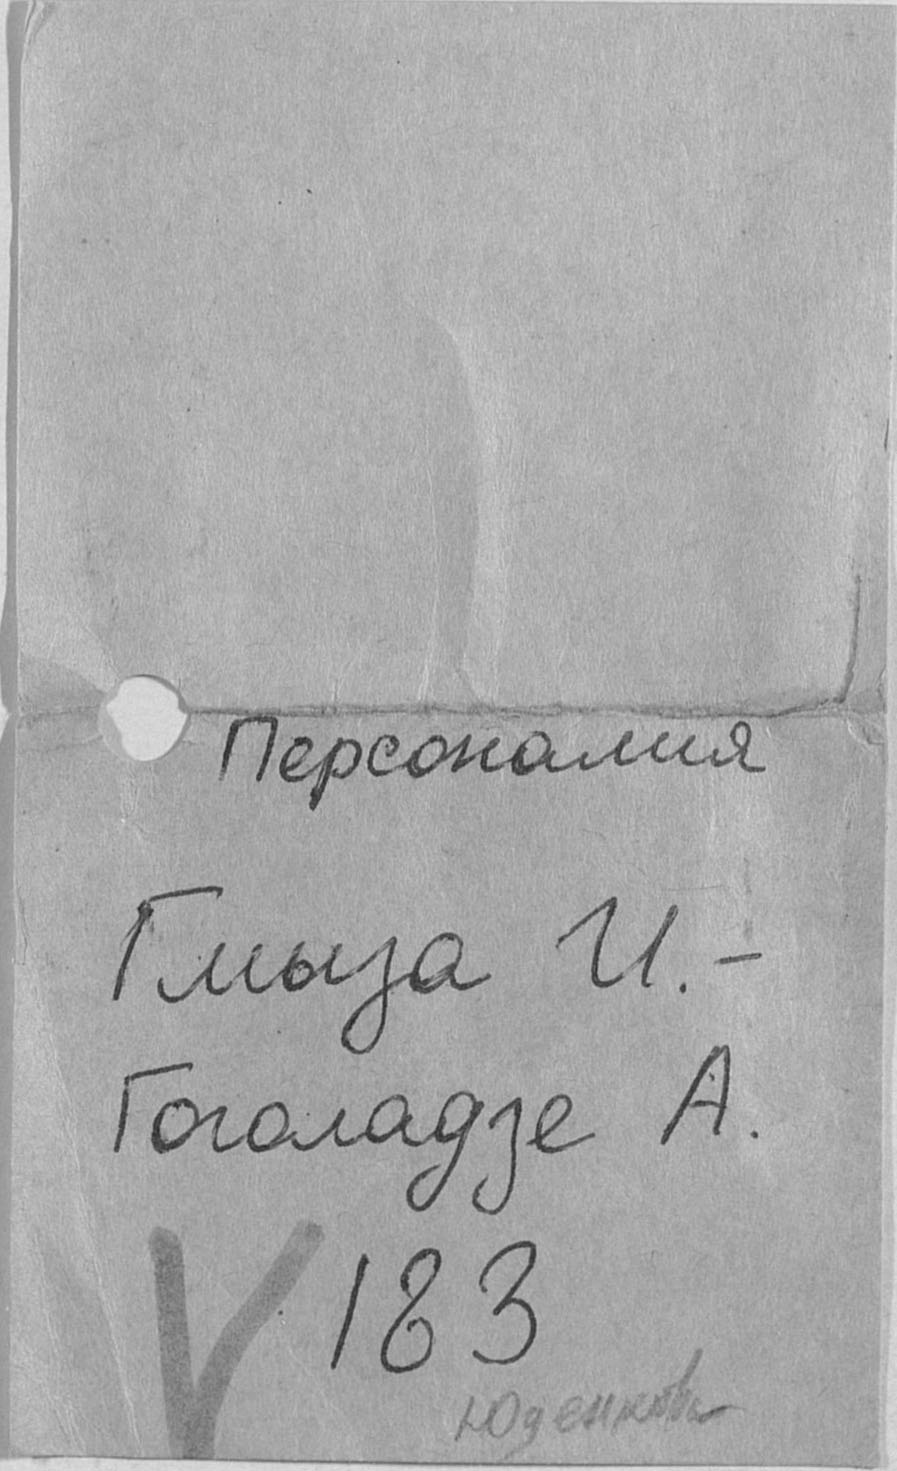 Персоналия
Глыза И.-
Гоголадзе А.
183
Юденкова